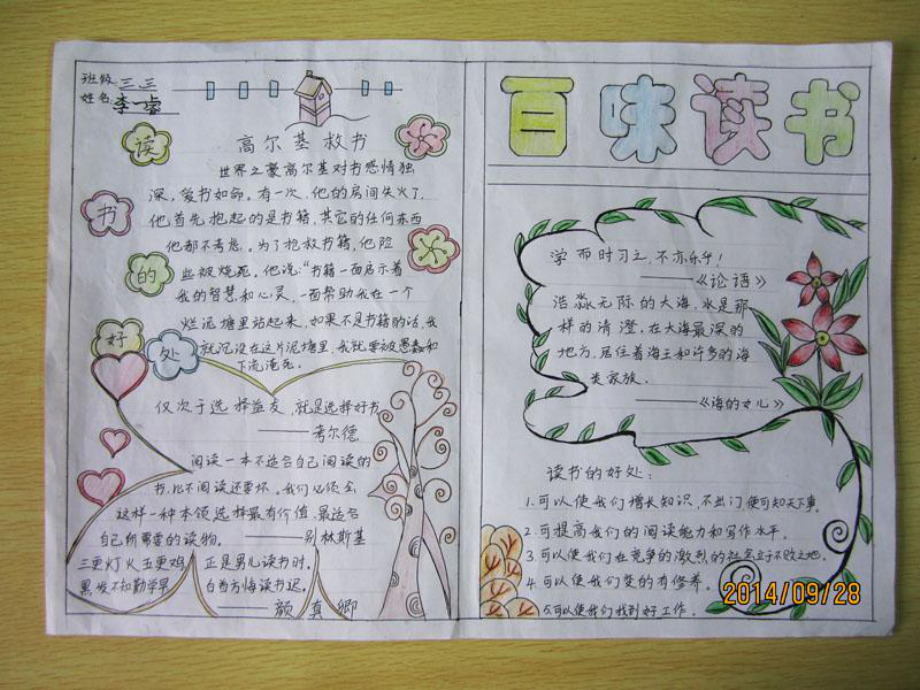 班级 三、三
姓名 李一睿
读书的好处
高尔基救书
世界文豪高尔基对书感情独
深，爱书如命。有一次，他的房间失火了，
他首先抱起的是书籍，其它的任何东西
他都不考虑。为了抢救书籍，他险
些被烧死。他说："书籍一面启示着
我的智慧和心灵，一面帮助我在一个
烂泥塘里站起来，如果不是书籍的话，我
就沉没在这片泥塘里，我就要被愚蠢和
下流淹死。
仅次于选择益友，就是选择好书
——考尔德
阅读一本不适合自己阅读的
书，比不阅读还要坏。我们必须会
这样一种本领，选择最有价值、最适合
自己所需要的读物。——别林斯基
三更灯火五更鸡 正是男儿读书时。
黑发不知勤学早 白首方悔读书迟。
——颜真卿
百味读书
学而时习之，不亦乐乎！
——《论语》
浩淼无际的大海，水是那
样的清澄。在大海最深的
地方，居住着海王和许多的海
类家族。
——《海的女儿》
读书的好处：
1.可以使我们增长知识，不出门便可知天下事。
2.可提高我们的阅读能力和写作水平。
3.可以使我们在竞争的激烈的社会立于不败之地。
4.可以使我们变的有修养。
5.可以使我们找到好工作。
2014/09/28